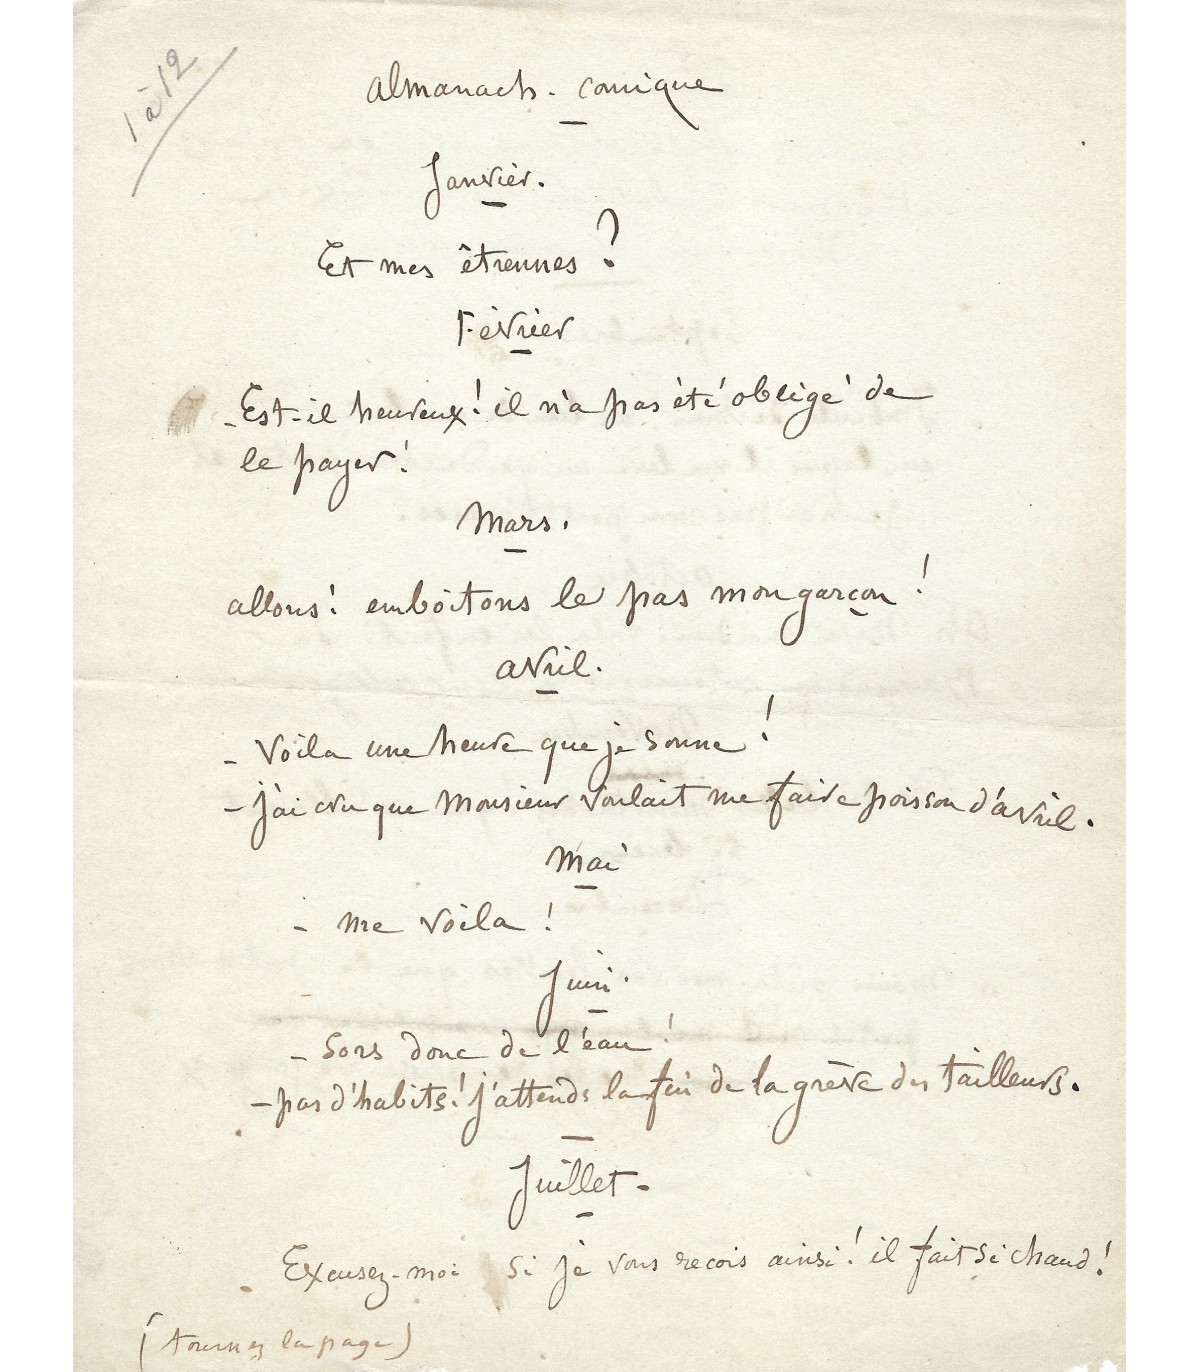 1 à 12
Almanach - comique
Janvier.
Et mes êtrennes ?
Février
- Est-il heureux ! il n'a pas été obligé de
le payer !
Mars.
allons ! emboîtons le pas mon garçon !
avril.
- Voila une heure que je sonne !
- j'ai cru que Monsieur voulait me faire poisson d'avril.
Mai
- me voila !
Juin.
- Sors donc de l'éau !
- pas d'habits ! j'attends la fin de la grève des tailleurs.
Juillet -
Excusez-moi si je vous recois ainsi ! il fait si chaud !
(tournez la page)